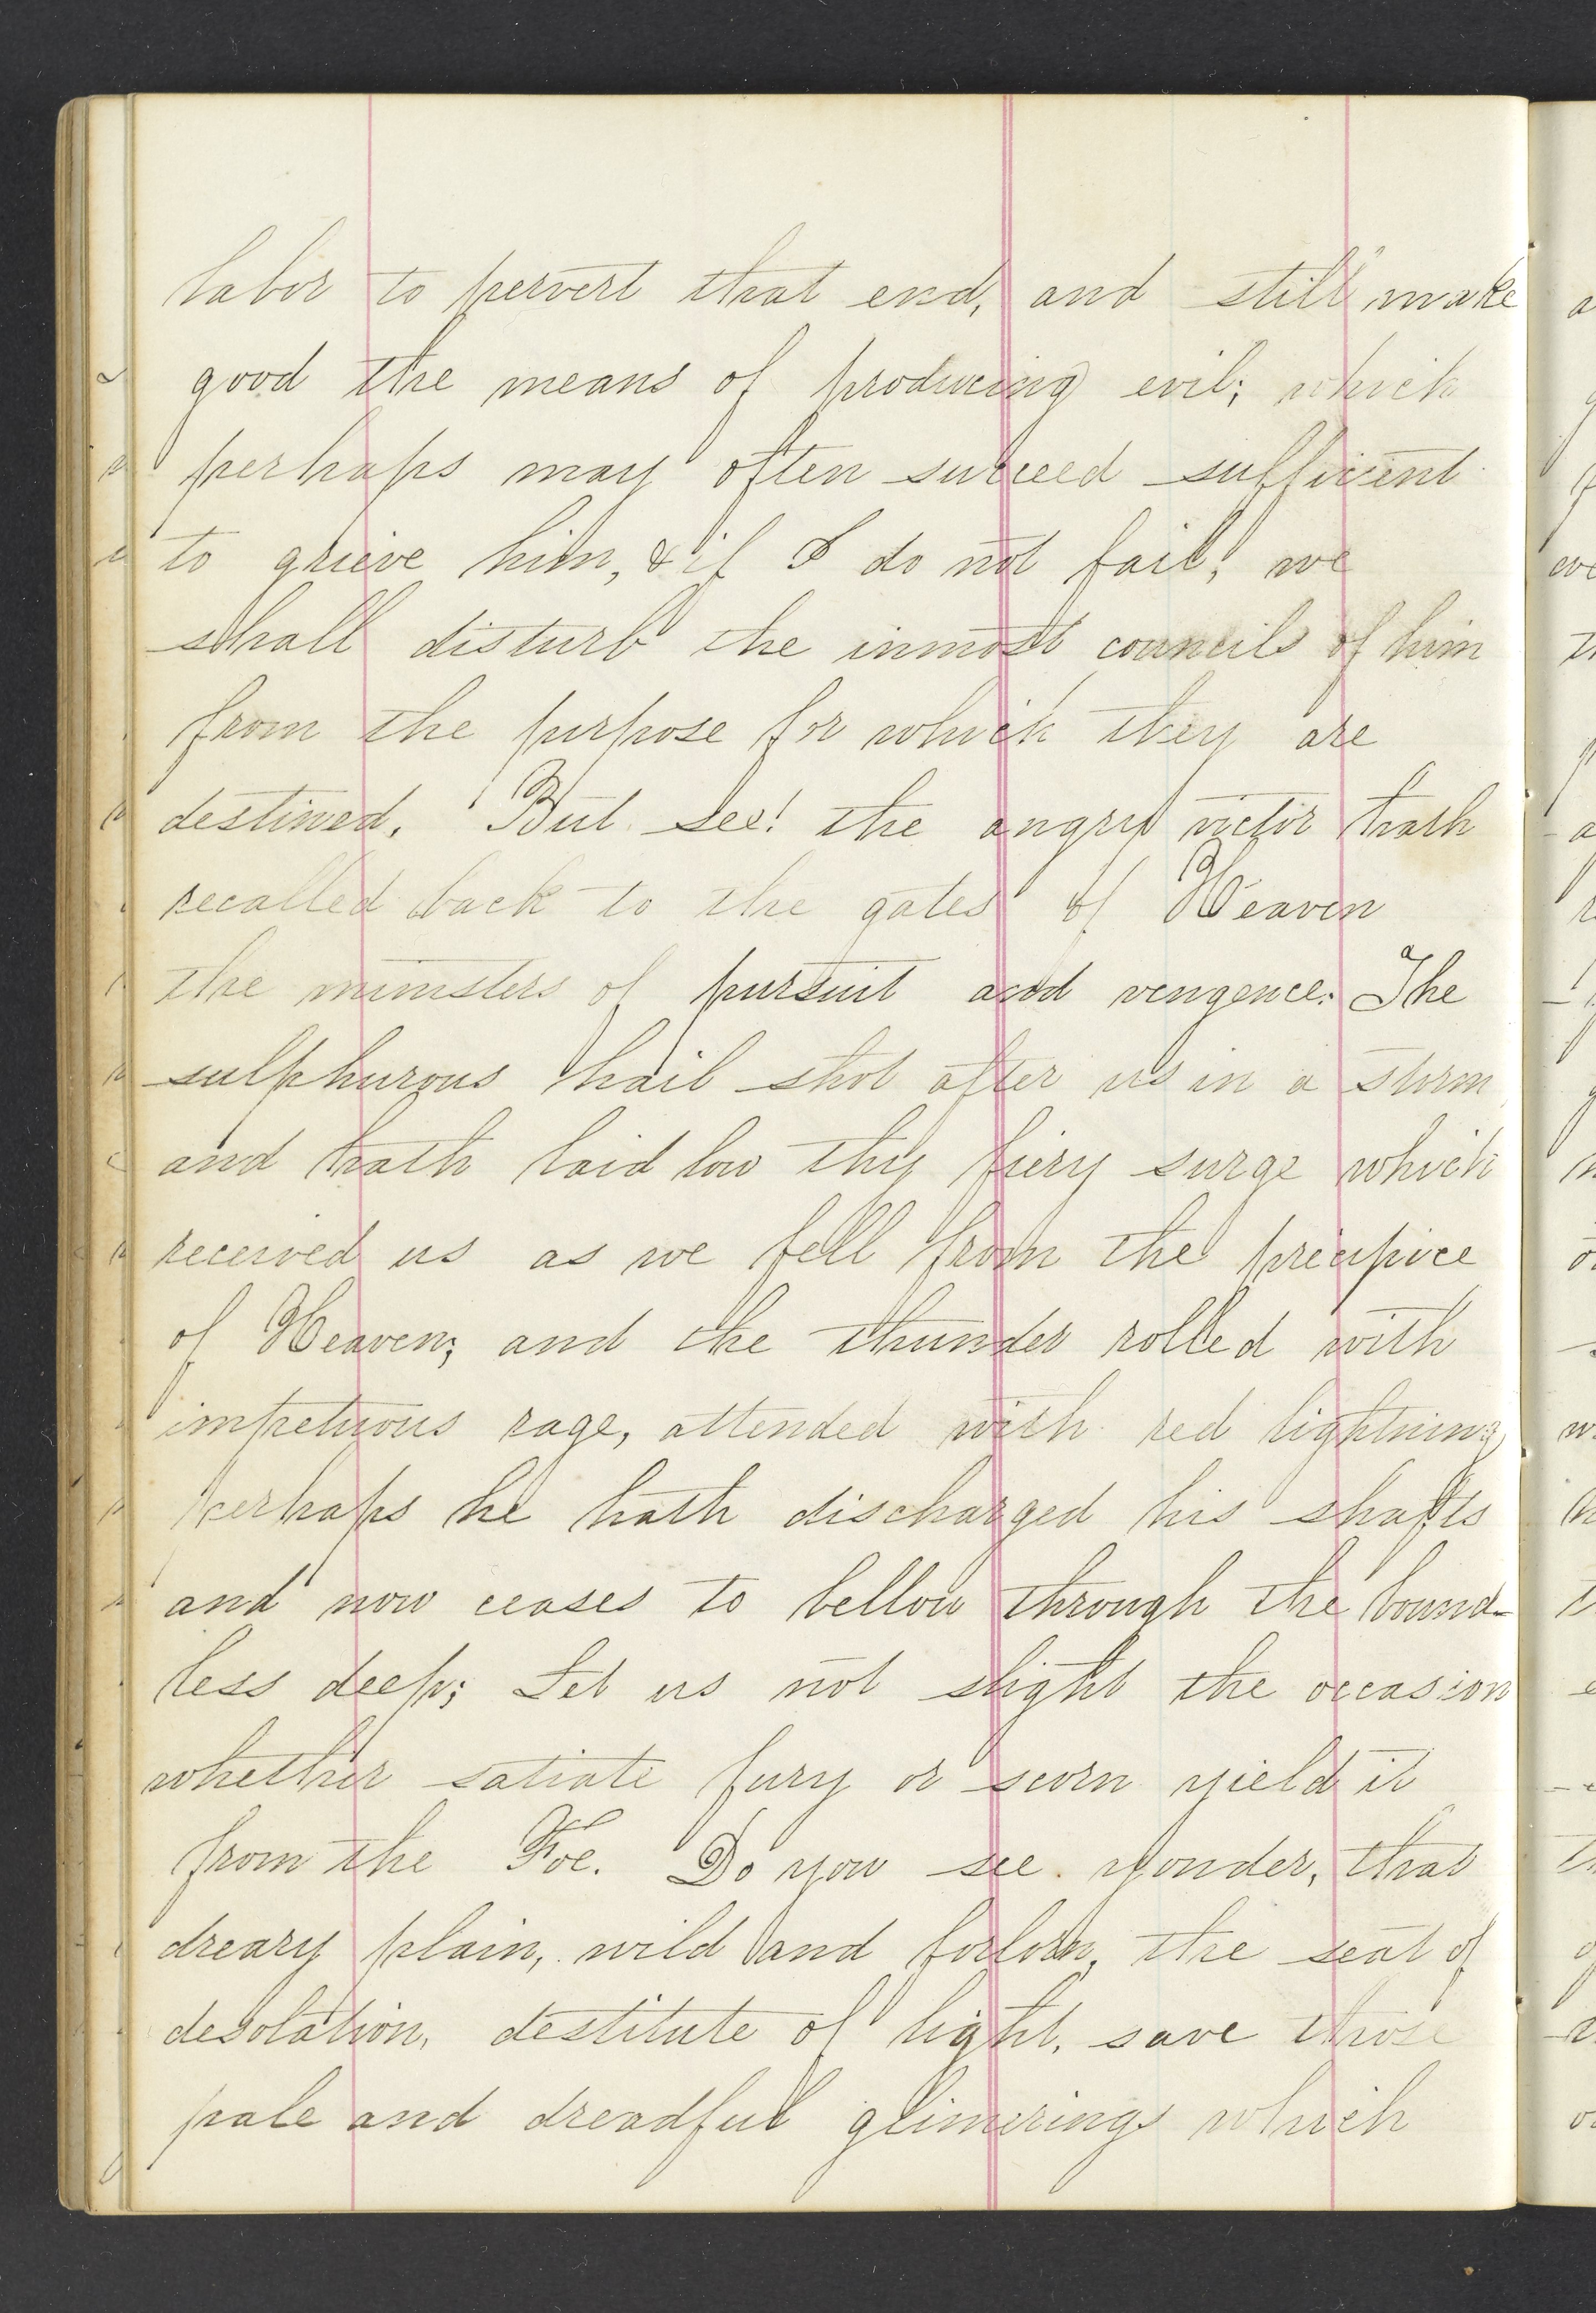 labor to pervert that end, and still make
good the means of producing evil; which
perhaps may often succeed sufficient
to grieve him, & if I do not fail, we
shall disturb the inmost councils of him
from the purpose for which they are
destined. But see! the angry victor hath
recalled back to the gates of Heaven
the ministers of pursuit and vengence: The
sulphurous hail shot after us in a storm
and hath laid low thy fiery surge which
received us as we fell from the precipice
of Heaven; and the thunder rolled with
impetuous rage, attended with red lightning
perhaps he hath discharged his shafts
and now ceases to bellow through the bound-
less deep; Let us not slight the occasion
whether satiate fury or scorn yield it
from the Foe. Do you see yonder, that
dreary plain, wild and forlorn, the seat of
desolation, destitute of light, save those
pale and dreadful glimerings which